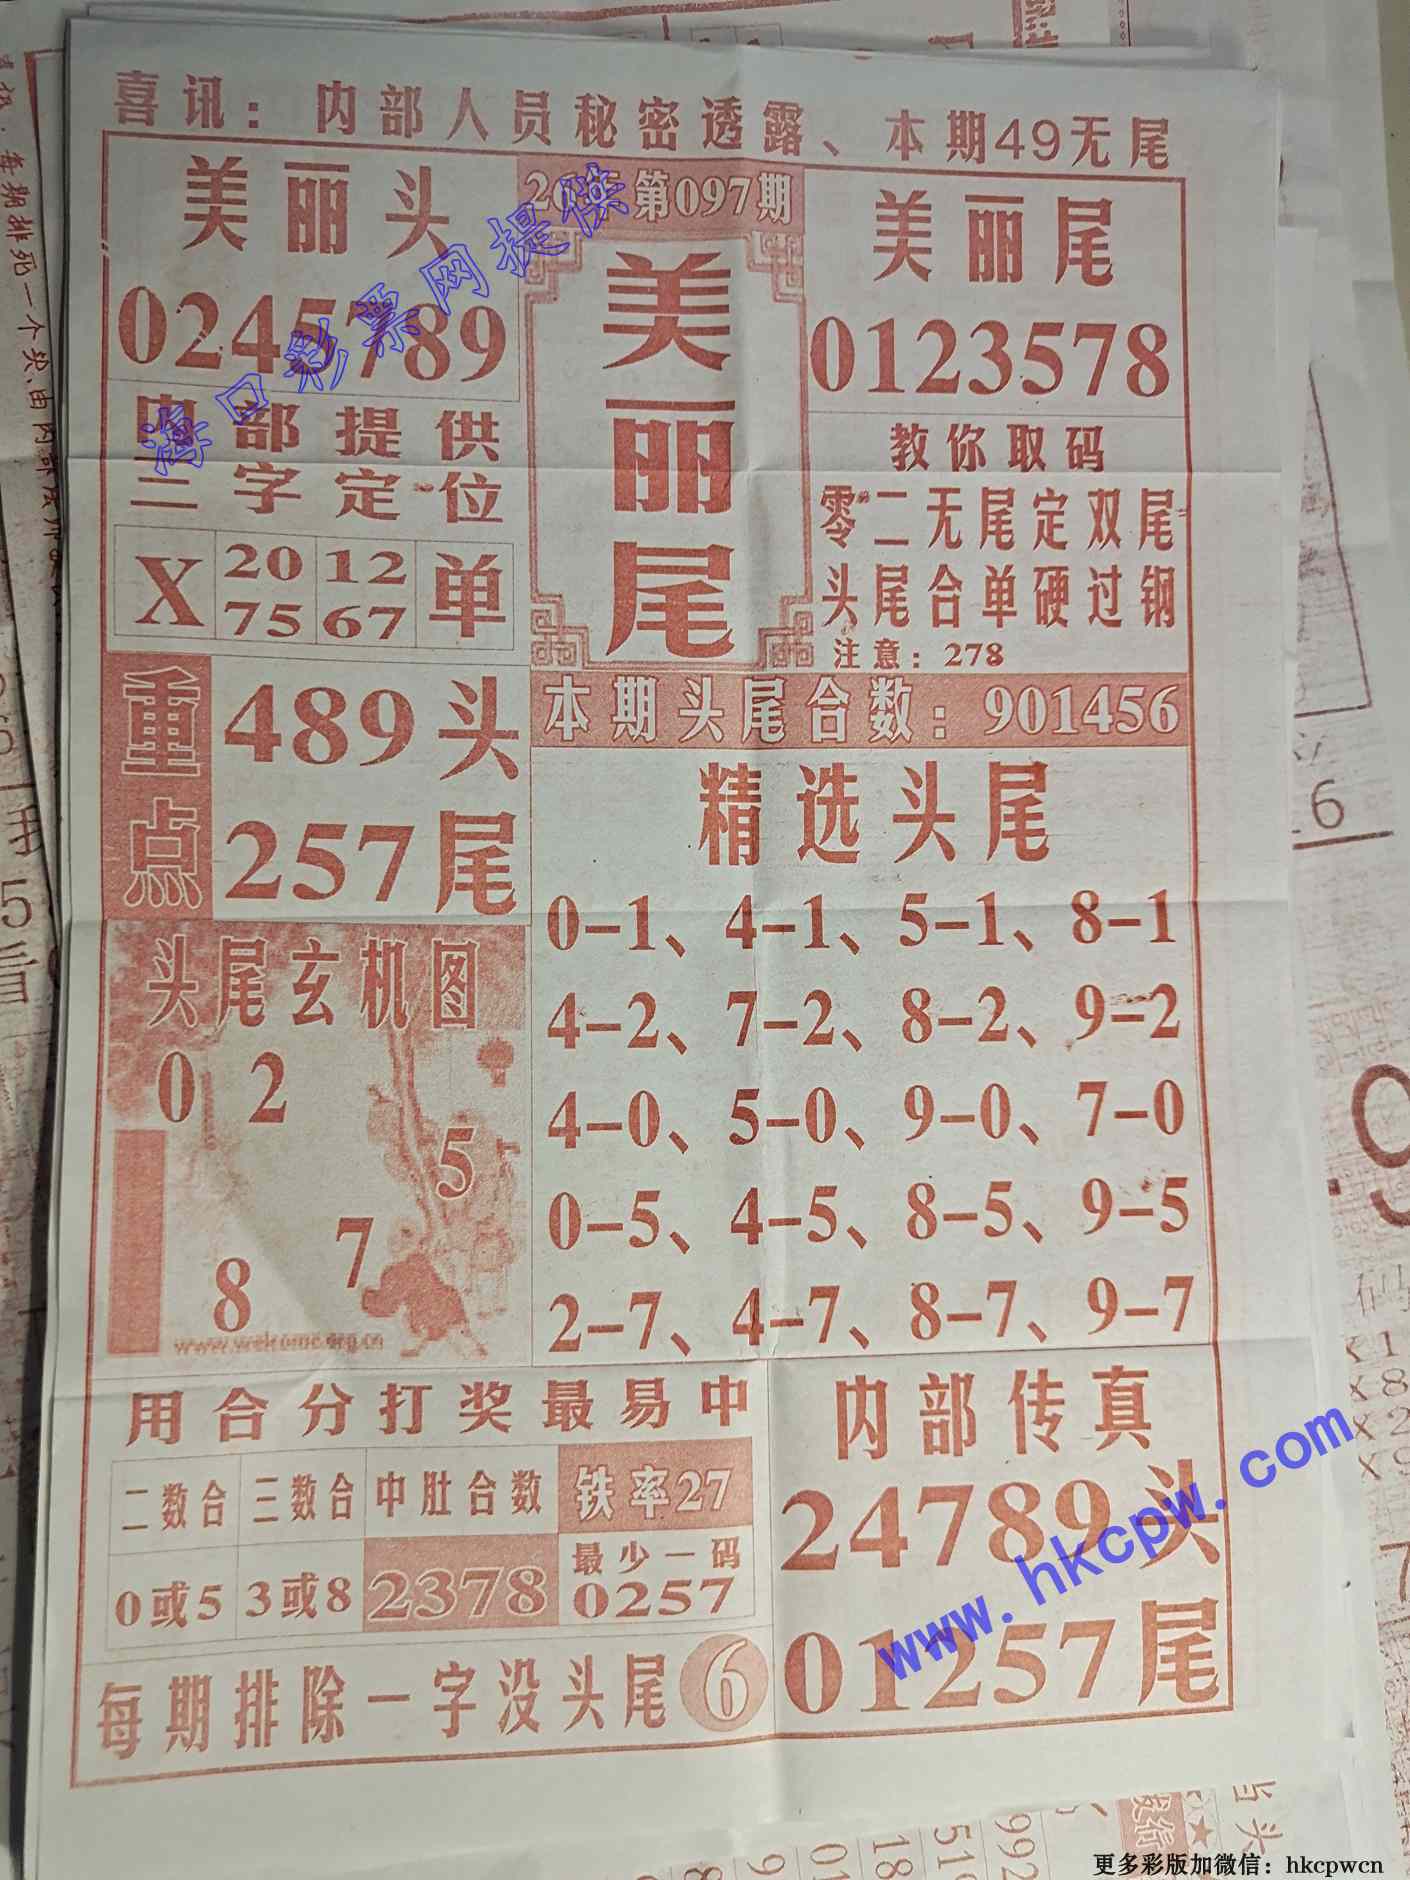 喜讯：内部人员秘密透露、本期49无尾
美丽头
0245789
第097期
美丽尾
美丽尾
0123578
内部提供
三字定位
X 20 12 单
75 67
教你取码
零二无尾定双尾
头尾合单硬过钢
注意：278
重点
489头
257尾
本期头尾合数：901456
精选头尾
0-1、4-1、5-1、8-1
4-2、7-2、8-2、9-2
4-0、5-0、9-0、7-0
0-5、4-5、8-5、9-5
2-7、4-7、8-7、9-7
头尾玄机图
0 2
5
7
8
www.welcome.org.cn
用合分打奖最易中
二数合 三数合 中肚合数 铁率27
0或5 3或8 2378 最少一码
0257
每期排除一字没头尾 6
内部传真
24789头
01257尾
海口彩票网提供
www.hkcpw.com
更多彩版加微信：hkcpwcn